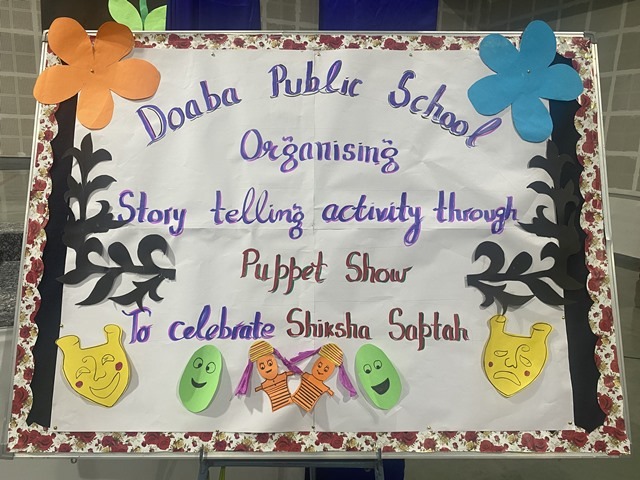 Doaba Public School
Organising
Story telling activity through
Puppet Show
To celebrate Shiksha Saptah